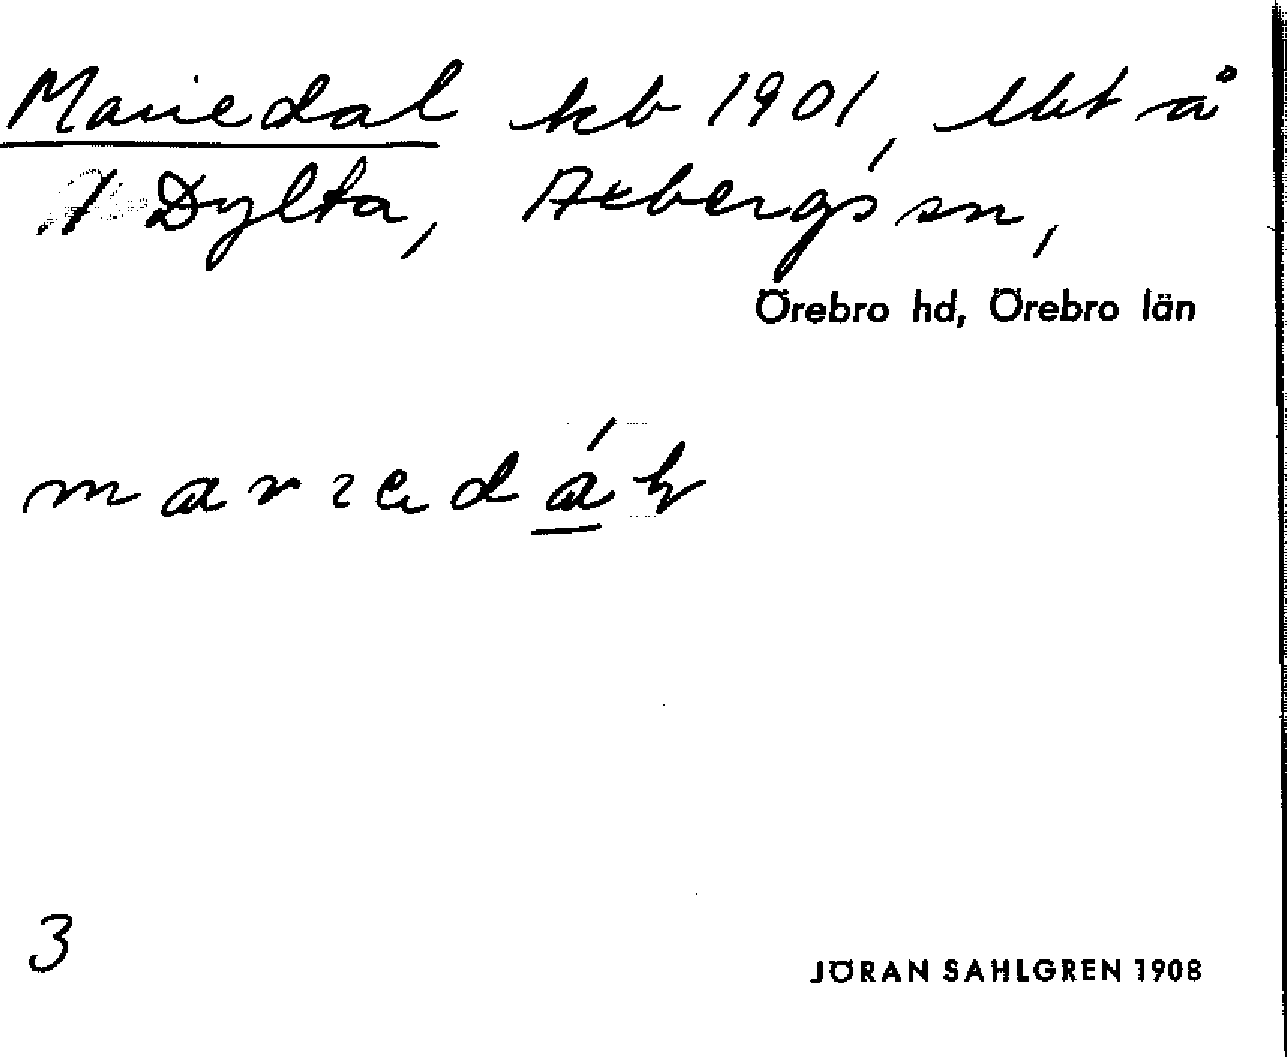 Mariedal hb 1901, lht å
1 Dylta, Axbergs sn,
Örebro hd, Örebro län
mariedál
3
JÖRAN SAHLGREN 1908